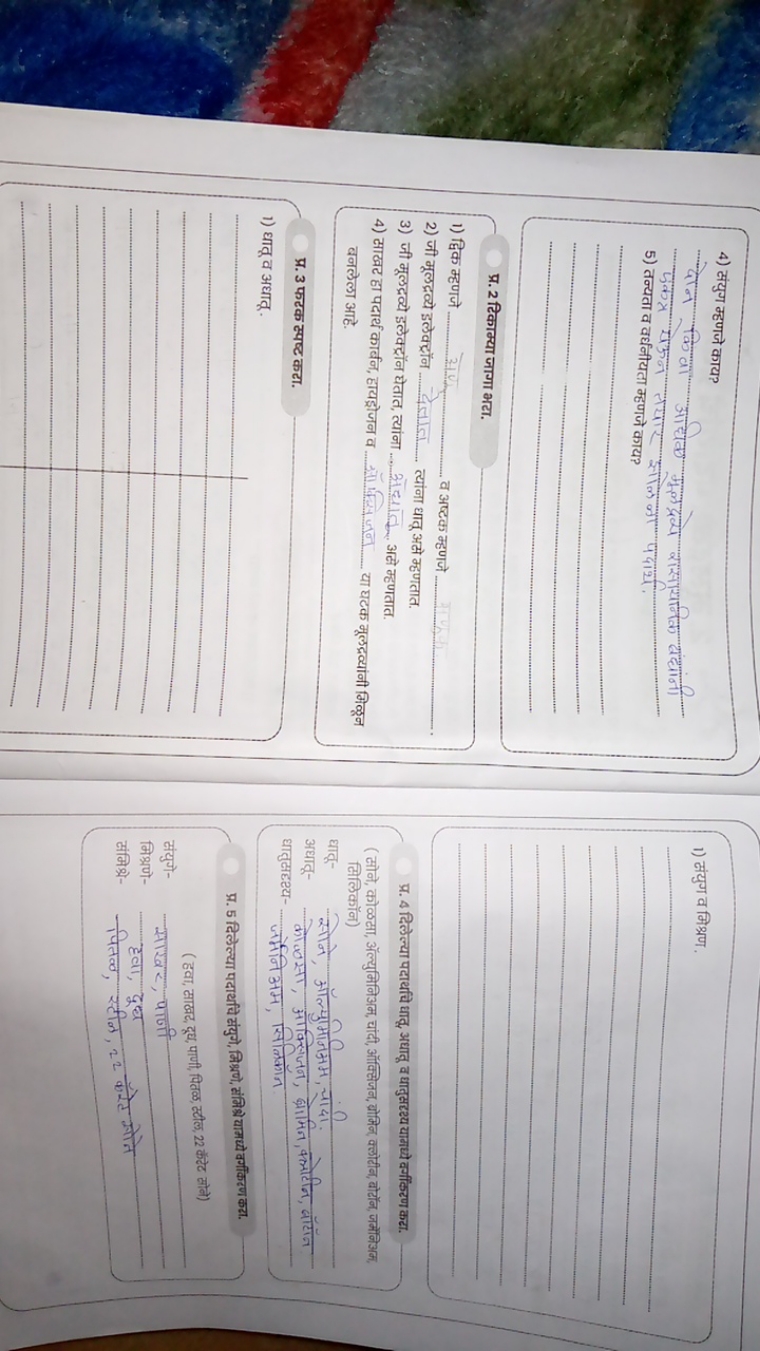 4) संयुग म्हणजे काय?
दोन किंवा अधिक मुलद्रव्य रासायनिक बंधांनी
एकत्र येऊन तयार झालेला पदार्थ.
5) तन्यता व वर्धनीयता म्हणजे काय?
प्र. 2 रिकाम्या जागा भरा.
1) द्विक म्हणजे व अष्टक म्हणजे
2) जी मूलद्रव्ये इलेक्ट्रॉन देतात त्यांना धातू असे म्हणतात.
3) जी मूलद्रव्ये इलेक्ट्रॉन घेतात, त्यांना अधातू असे म्हणतात.
4) साखर हा पदार्थ कार्बन, हायड्रोजन व ऑक्सिजन या घटक मूलद्रव्यांनी मिळून
बनलेला आहे.
प्र. 3 फरक स्पष्ट करा.
1) धातू व अधातू.
1) संयुग व मिश्रण.
प्र. 4 दिलेल्या पदार्थांचे धातू, अधातू व धातुसदृश्य यामध्ये वर्गीकरण करा.
( सोने, कोळसा, ॲल्युमिनिअम, चांदी, ऑक्सिजन, ब्रोमिन, क्लोरीन, बोरॉन, जर्मेनिअम,
सिलिकॉन)
धातू- सोने, ॲल्युमिनिअम, चांदी.
अधातू- कोळसा, ऑक्सिजन, ब्रोमिन, क्लोरीन, बोरॉन
धातुसदृश्य- जर्मेनिअम, सिलिकॉन.
प्र. 5 दिलेल्या पदार्थांचे संयुगे, मिश्रणे, संमिश्रे यामध्ये वर्गीकरण करा.
( हवा, साखर, दूध, पाणी, पितळ, स्टील, 22 कॅरेट सोने)
संयुगे- साखर, पाणी
मिश्रणे- हवा, दूध
संमिश्रे- पितळ, स्टील, 22 कॅरेट सोने